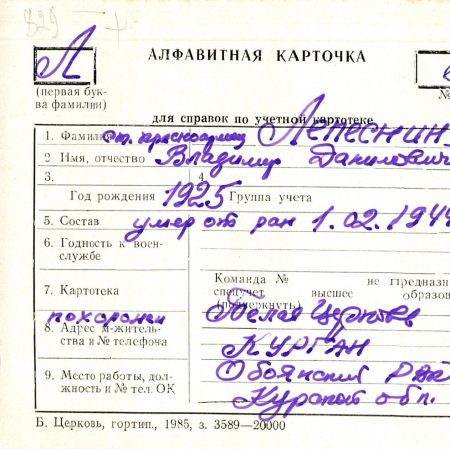 829
Л АЛФАВИТНАЯ КАРТОЧКА
(первая бук-
ва фамилии) №
для справок по учетной картотеке
1. Фамилия ст. красноармеец Лепеснин
2. Имя, отчество Владимир Данилович
3. 4.
Год рождения 1925 Группа учета
5. Состав умер от ран 1.02.1944
6. Годность к воен-
службе
7. Картотека
Команда № не предназн
спецучет высшее образов
(подчеркнуть)
похоронен Белая Церковь
8. Адрес м-житель-
ства и № телефона КУРГАН
9. Место работы, дол-
жность и № тел. ОК
Обоянский
Курской обл.
Б. Церковь, гортип., 1985, з. 3589—20000